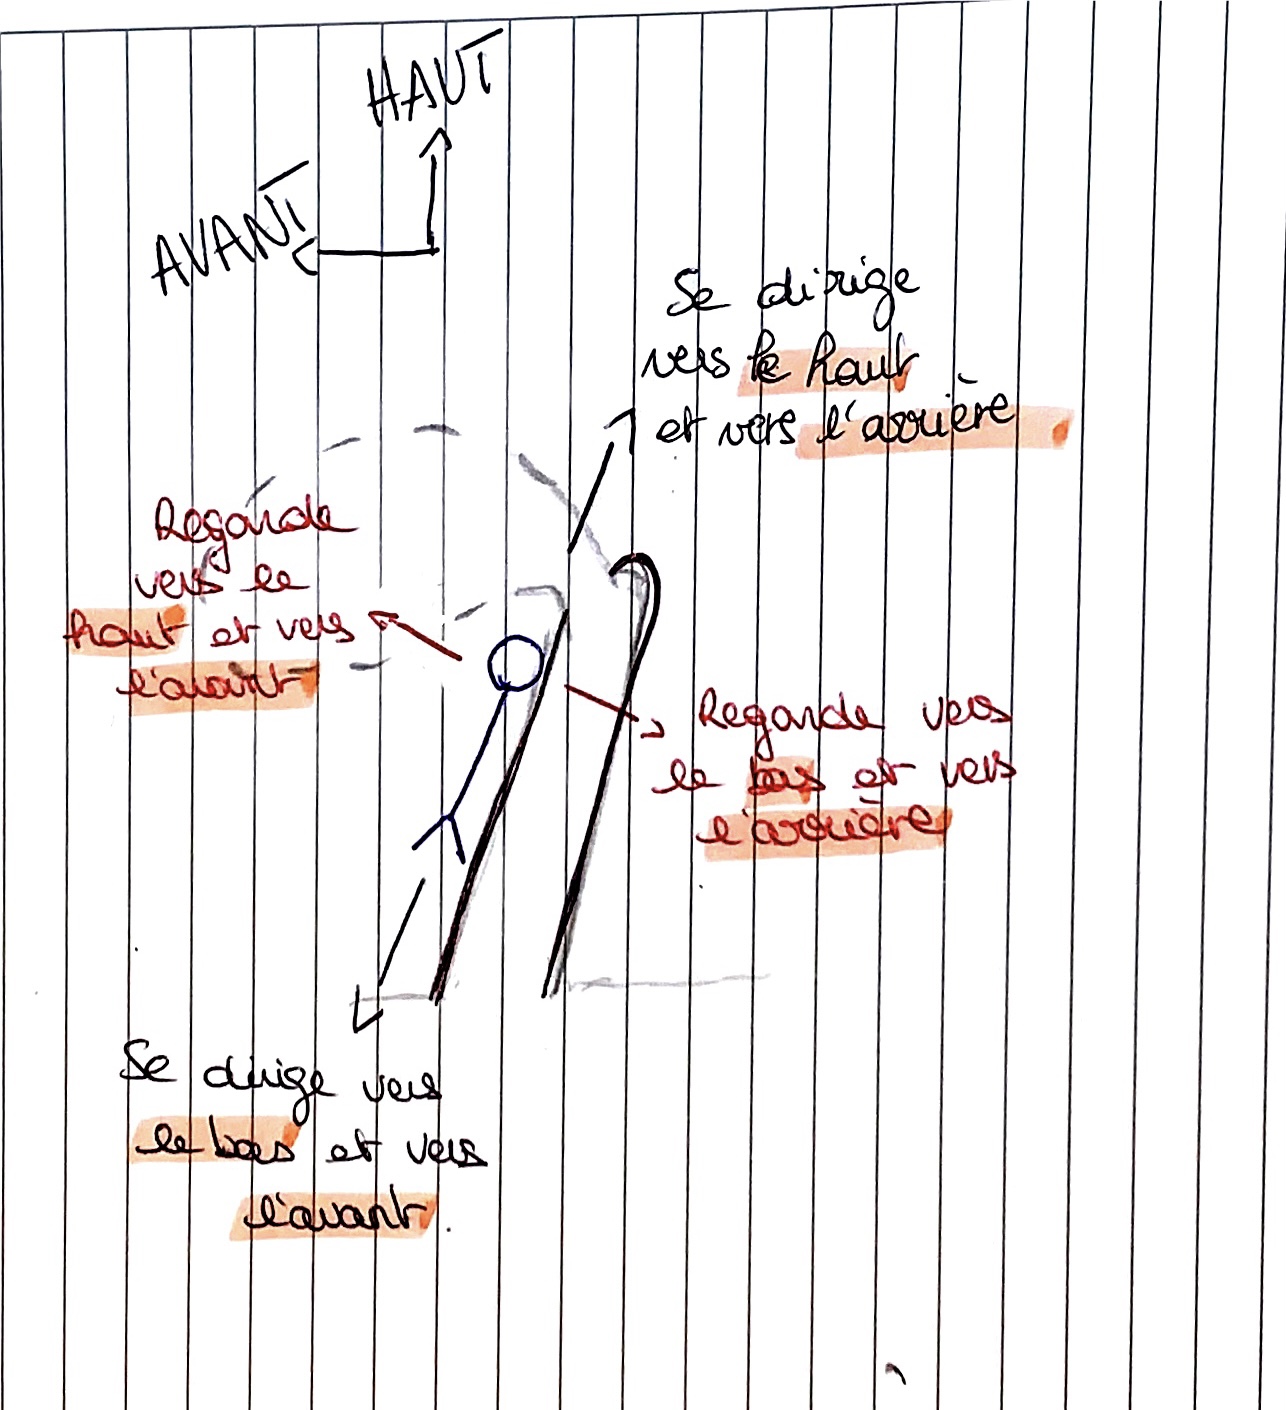 HAUT
AVANT
Se dirige
vers le haut
et vers l'arrière
Regarde
vers le
haut et vers
l'avant
Regarde vers
le bas et vers
l'arrière
Se dirige vers
le bas et vers
l'avant.